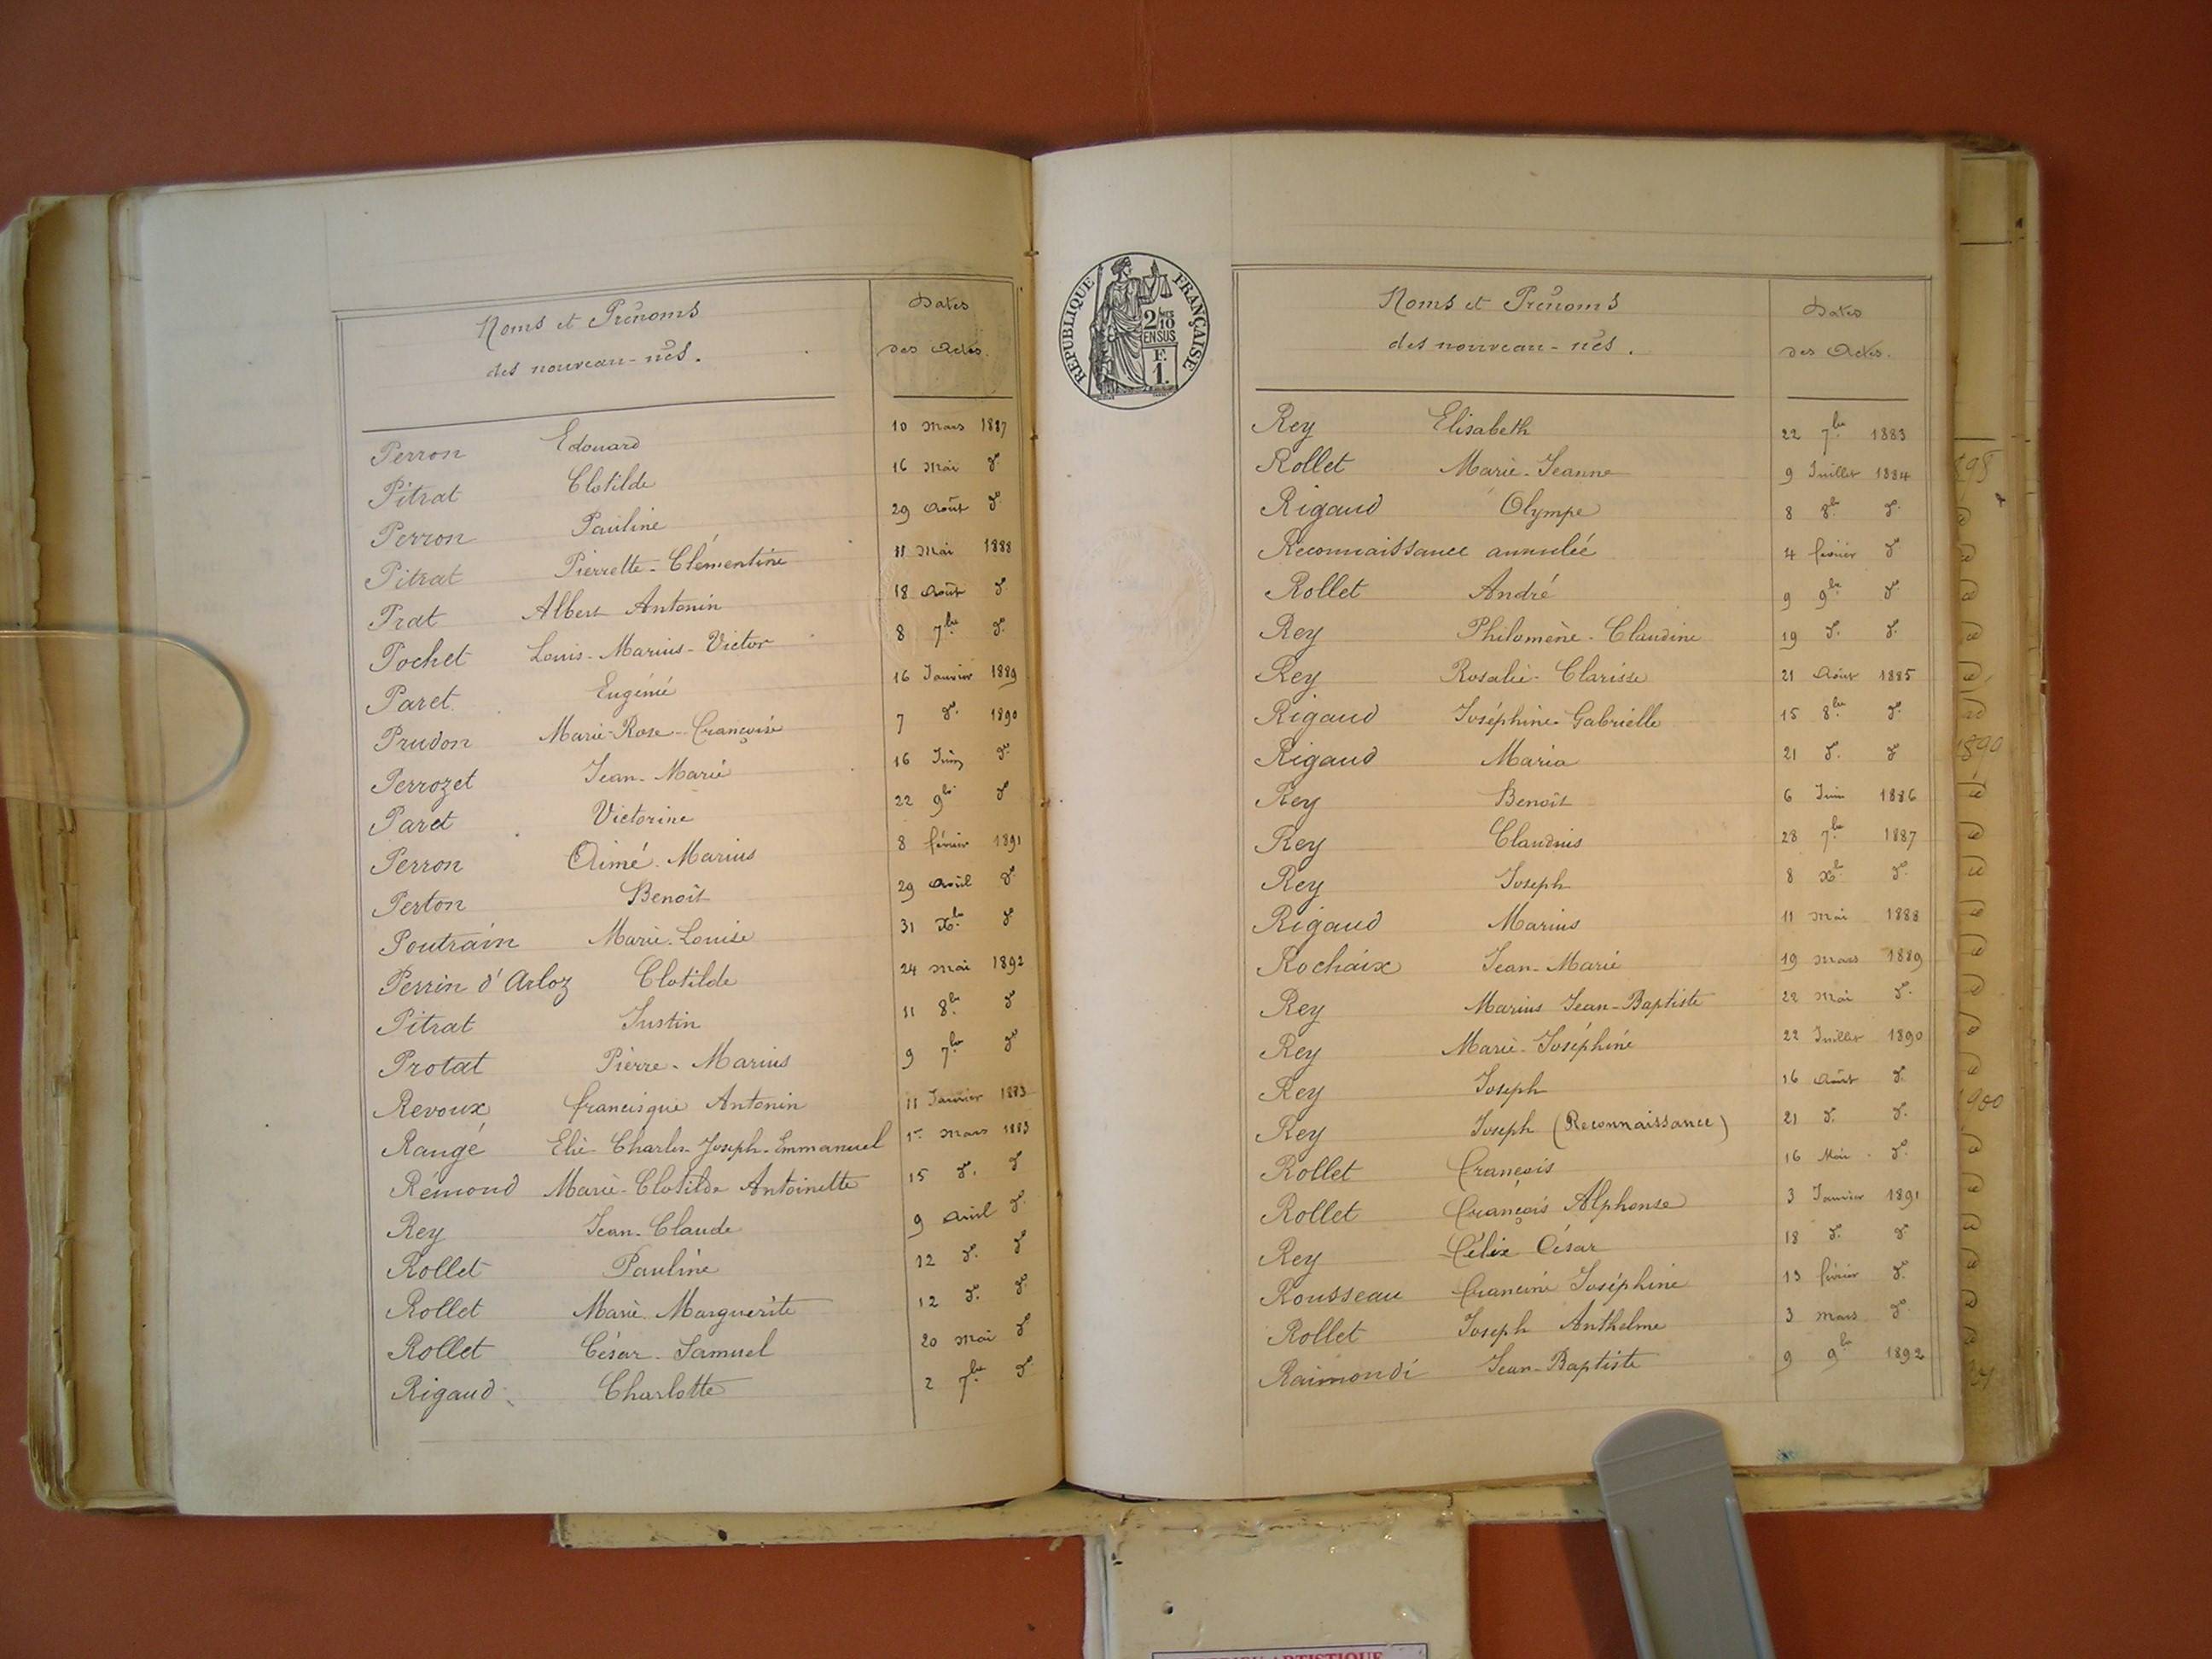 Noms et Prénoms
des nouveau-nés.
Dates
des Actes.
Perron Edouard 10 Mars 1887
Pitrat Clotilde 16 Mai do
Perron Pauline 29 Août do
Pitrat Pierrette-Clémentine 11 Mai 1888
Prat Albert Antonin 18 Août do
Pochet Louis-Marius-Victor 8 7bre do
Paret Eugénie 16 Janvier 1889
Prudon Marie-Rose-Françoise 7 do 1890
Perrozet Jean-Marie 16 Juin do
Paret Victorine 22 9bre do
Perron Aimé Marius 8 février 1891
Perton Benoît 29 Avril do
Poutrain Marie-Louise 31 Xbre do
Perrin d'Arloz Clotilde 24 Mai 1892
Pitrat Justin 11 8bre do
Protat Pierre-Marius 9 7bre do
Revoux francisque Antonin 11 Janvier 1883
Raugé Elie-Charles-Joseph-Emmanuel 1er Mars 1883
Rémond Marie-Clotilde Antoinette 15 do do
Rey Jean-Claude 9 Avril do
Rollet Pauline 12 do do
Rollet Marie Marguerite 12 do do
Rollet César-Samuel 20 Mai do
Rigaud Charlotte 2 7bre do
RÉPUBLIQUE FRANÇAISE
2/10
EN SUS
F.
1.
Noms et Prénoms
des nouveau-nés.
Dates
des Actes.
Rey Elisabeth 22 7bre 1883
Rollet Marie-Jeanne 9 Juillet 1884
Rigaud Olympe 8 8bre do
Reconnaissance annulée 4 février do
Rollet André 9 9bre do
Rey Philomène-Claudine 19 do do
Rey Rosalie-Clarisse 21 Août 1885
Rigaud Joséphine-Gabrielle 15 8bre do
Rigaud Maria 21 do do
Rey Benoît 6 Juin 1886
Rey Claudius 28 7bre 1887
Rey Joseph 8 Xbre do
Rigaud Marius 11 Mai 1888
Rochaix Jean-Marie 19 Mars 1889
Rey Marius Jean-Baptiste 22 Mai do
Rey Marie-Joséphine 22 Juillet 1890
Rey Joseph 16 Août do
Rey Joseph (Reconnaissance) 21 do do
Rollet François 16 Mai do
Rollet François Alphonse 3 Janvier 1891
Rey Félix César 18 do do
Rousseau Francine Joséphine 13 février do
Rollet Joseph Anthelme 3 Mars do
Raimondi Jean-Baptiste 9 9bre 1892
1890
1900